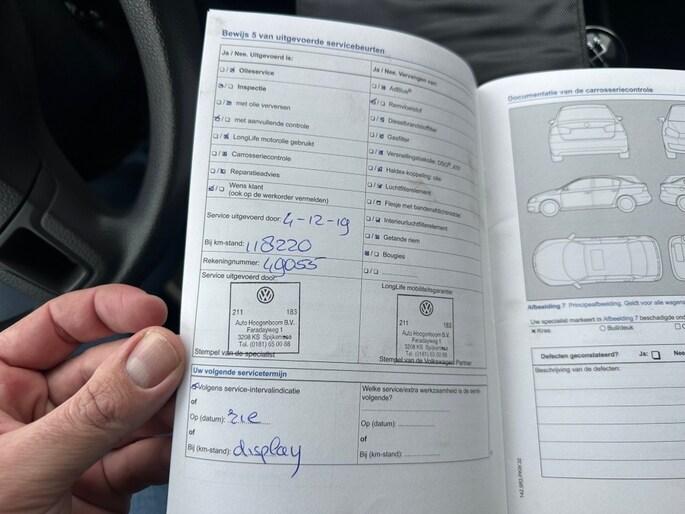 Bewijs 5 van uitgevoerde servicebeurten
Ja / Nee. Uitgevoerd is:
Olieservice
Inspectie
met olie verversen
met aanvullende controle
LongLife motorolie gebruikt
Carrosseriecontrole
Reparatieadvies
Wens klant
(ook op de werkorder vermelden)
Service uitgevoerd door: 4-12-19
Bij km-stand: 118220
Rekeningnummer: 49055
Service uitgevoerd door:
211 183
Auto Hoogenboom B.V.
Faradayweg 1
3208 KS Spijkenisse
Tel. (0181) 65 00 88
Stempel van de specialist
Ja / Nee. Vervangen van:
AdBlue®
Remvloeistof
Dieselbrandstoffilter
Gasfilter
Versnellingsbakolie: DSG®, ATF
Haldex koppeling: olie
Luchtfilterelement
Flesje met bandenafdichtmiddel
Interieurluchtfilterelement
Getande riem
Bougies
LongLife mobiliteitsgarantie:
211 183
Auto Hoogenboom B.V.
Faradayweg 1
3208 KS Spijkenisse
Tel. (0181) 65 00 88
Stempel van de Volkswagen Partner
Uw volgende servicetermijn
Volgens service-intervalindicatie
of
Op (datum): zie
of
Bij (km-stand): display
Welke service/extra werkzaamheid is de eerst-
volgende?
Op (datum):
of
Bij (km-stand):
Documentatie van de carrosseriecontrole
Afbeelding 7 Principeafbeelding. Geldt voor alle
Uw specialist markeert in Afbeelding 7 beschadigde
Kras Buil/deuk
Defecten geconstateerd? Ja: Nee
Beschrijving van de defecten: